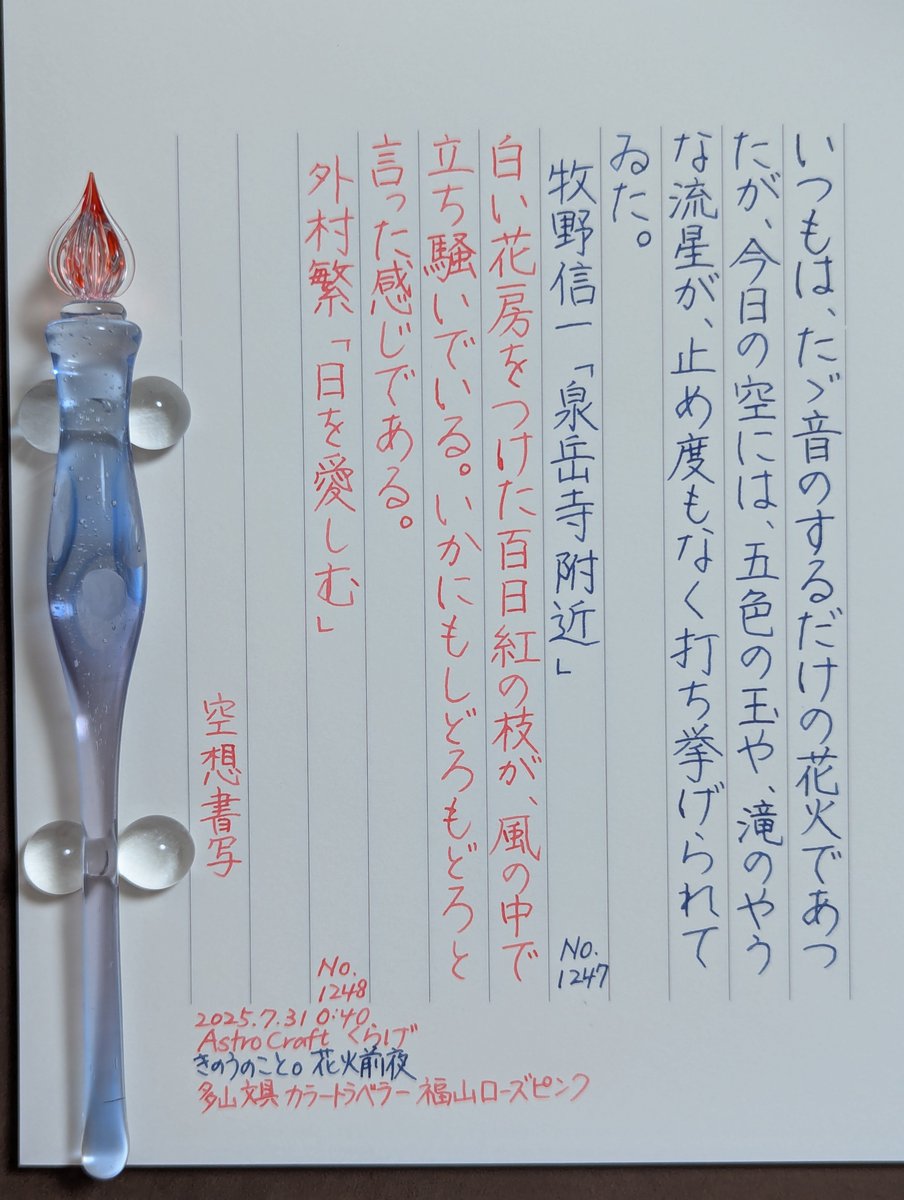 いつもは、たゞ音のするだけの花火であつ
たが、今日の空には、五色の玉や、滝のやう
な流星が、止め度もなく打ち挙げられて
ゐた。
牧野信一「泉岳寺附近」
No.
1247
白い花房をつけた百日紅の枝が、風の中で
立ち騒いでいる。いかにもしどろもどろと
言った感じである。
外村繁「日を愛しむ」
No.
1248
空想書写
2025.7.31 0:40
Astro Craft くらげ
きのうのこと。花火前夜
多山文具 カラートラベラー 福山ローズピンク